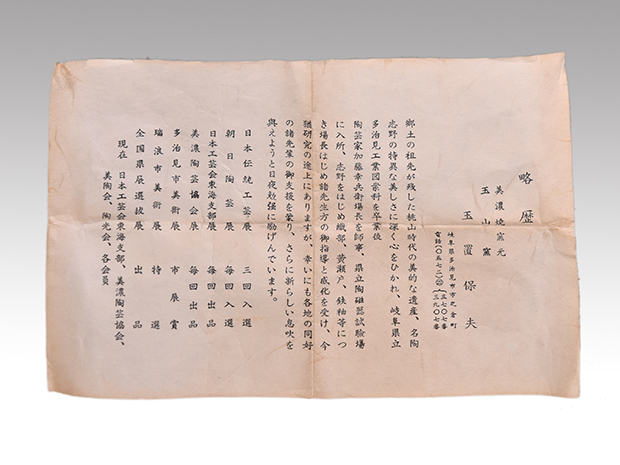 略歴
美濃焼窯元
玉山窯
玉置保夫
岐阜県多治見市市之倉町
電話(〇五七二)㉒(五七〇七番
三九〇七番
郷土の祖先が残した桃山時代の美的な遺産、名陶
志野の特異な美しさに深く心をひかれ、岐阜県立
多治見工業図案科を卒業後
陶芸家加藤幸兵衛場長を師事、県立陶磁器試験場
に入所、志野をはじめ織部、黄瀬戸、鉄釉等につ
き場長はじめ諸先生方の御指導と感化を受け、今
猶研究の途上にありますが、幸いにも各地の同好
の諸先輩の御支援を蒙り、さらに新らしい息吹を
與えようと日夜勉強に励げんでいます。
日本伝統工芸展 三回入選
朝日陶芸展 毎回入選
日本工芸会東海支部展 毎回出品
美濃陶芸協会展 毎回出品
多治見市美術展 市展賞
瑞浪市美術展 特選
全国県展選抜展 出品
現在 日本工芸会東海支部、美濃陶芸協会、
美陶会、陶光会、各会員